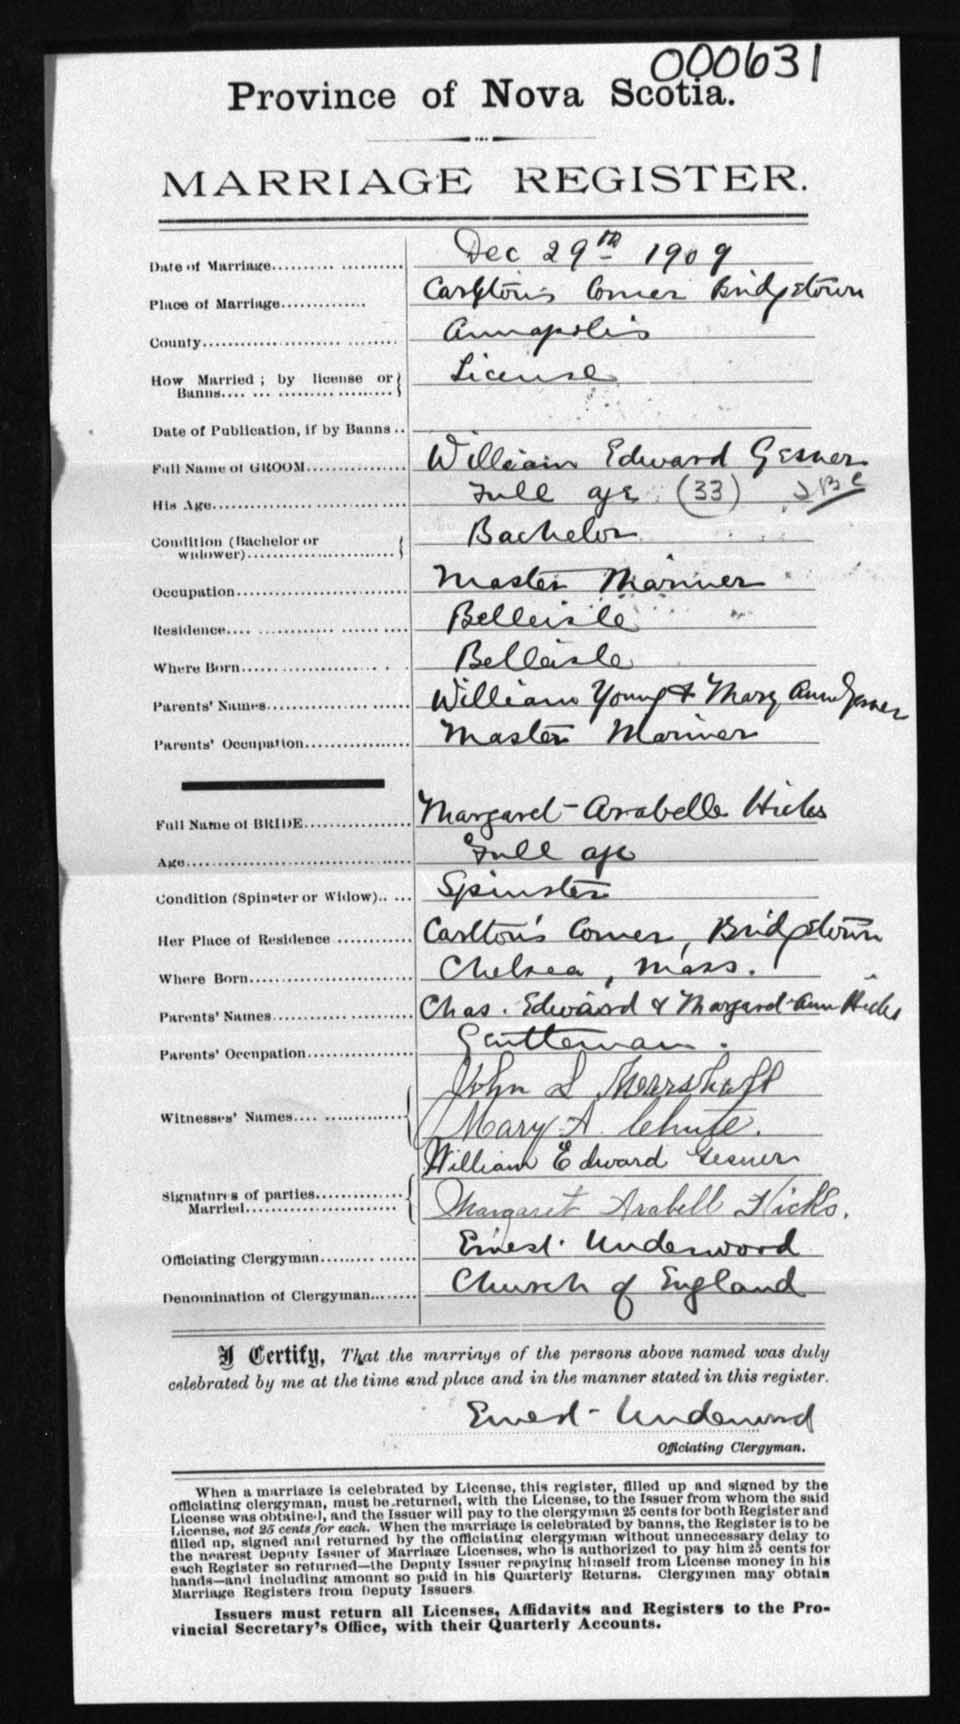 000631
Province of Nova Scotia.
MARRIAGE REGISTER.
Date of Marriage.......... Dec 29th 1909
Place of Marriage............. Carlton's Corner Bridgetown
County.......... Annapolis
How Married ; by license or License
Banns..........
Date of Publication, if by Banns ..
Full Name of GROOM............... William Edward Gesner
His Age.......... Full age (33)
Condition (Bachelor or Bachelor
widower)..........
Occupation.......... Master Mariner
Residence.......... Belleisle
Where Born.......... Belleisle
Parents' Names.......... William Young & Mary Ann Gesner
Parents' Occupation.......... Master Mariner
Full Name of BRIDE............... Margaret Arabelle Hicks
Age.......... Full age
Condition (Spinster or Widow).. ... Spinster
Her Place of Residence ........... Carlton's Corner, Bridgetown
Where Born.......... Chelsea, Mass.
Parents' Names.......... Chas. Edward & Margaret Ann Hicks
Parents' Occupation.............. Gentleman.
John S Marshall
Witnesses' Names.... Mary A Chute.
William Edward Gesner
Signatures of parties.............
Married.......... Margaret Arabell Hicks.
Officiating Clergyman.......... Ernest Underwood
Denomination of Clergyman....... Church of England
I Certify, That the marriage of the persons above named was duly
celebrated by me at the time and place and in the manner stated in this register.
Ernest Underwood
Officiating Clergyman.
When a marriage is celebrated by License, this register, filled up and signed by the
officiating clergyman, must be returned, with the License, to the Issuer from whom the said
License was obtained, and the Issuer will pay to the clergyman 25 cents for both Register and
License, not 25 cents for each. When the marriage is celebrated by banns, the Register is to be
filled up, signed and returned by the officiating clergyman without unnecessary delay to
the nearest Deputy Issuer of Marriage Licenses, who is authorized to pay him 25 cents for
each Register so returned—the Deputy Issuer repaying himself from License money in his
hands—and including amount so paid in his Quarterly Returns. Clergymen may obtain
Marriage Registers from Deputy Issuers
Issuers must return all Licenses, Affidavits and Registers to the Pro-
vincial Secretary's Office, with their Quarterly Accounts.